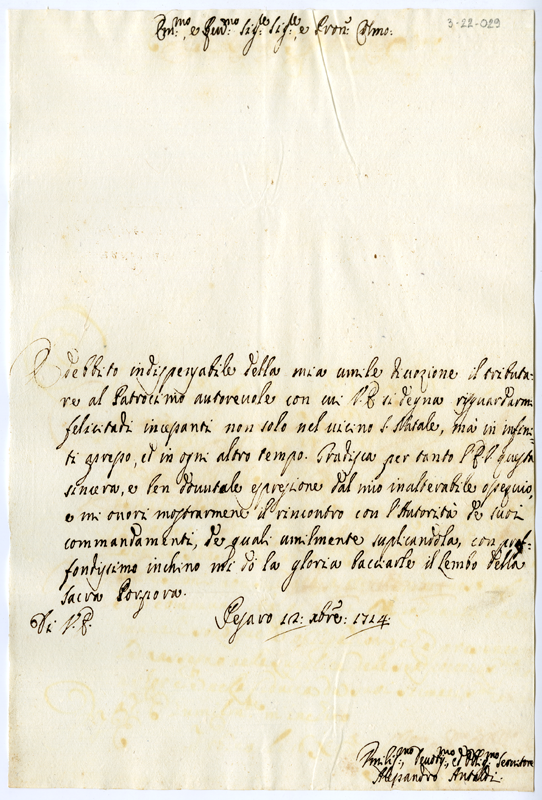 3-22-029
Em.mo, e Rev.mo Sig.r Sig.r, e Pron.e Col.mo:
È debbito indispensabile della mia umile divozione il tributa-
re al Patrocinio autorevole con cui V.E. si degna risguardarmi
felicitadi incesanti non solo nel vicino S. Natale, mà in infini-
ti apreso, ed in ogni altro tempo. Gradisca per tanto l'E.V. questa
sincera, e ben dovutale espresione dal mio inalterabile ossequio,
e mi onori mostrarmene il rincontro con l'Autorità de suoi
commandamenti, de quali umilmente suplicandola, con pro-
fondissimo inchino mi dò la gloria bacciarle il Lembo della
Sacra Porpora.
Di V.E. Pesaro 12: xbre: 1714.
Umiliss.mo, Devotis.mo, ed Obl.mo Servitore
Alesandro Antaldi